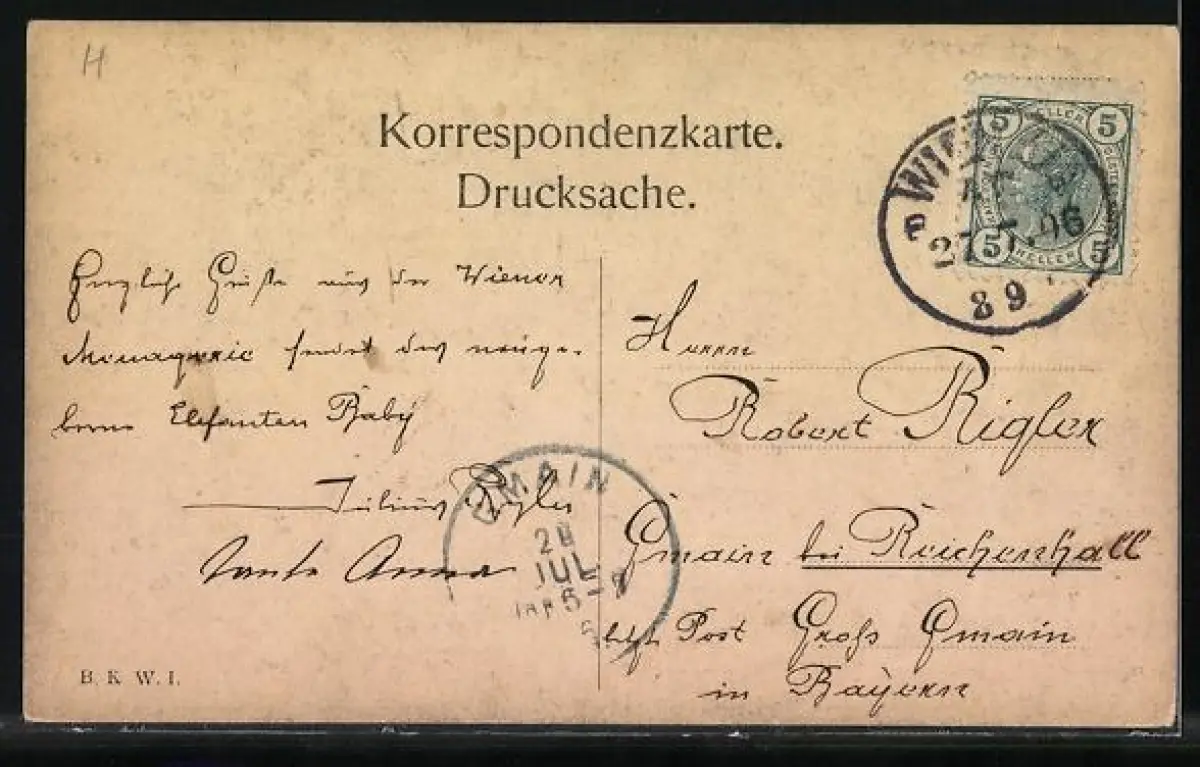 H
Korrespondenzkarte.
Drucksache.
5 HELLER 5
5 HELLER 5
WIEN
27.7.06
89
Herzliche Grüße aus der Wiener
Menagerie sendet das neuge-
borene Elefanten Baby
Julius Rigler
Tante Anna
GMAIN
20
JUL
B. K. W. I.
Herrn
Robert Rigler
Gmain bei Reichenhall
letzte Post Gross Gmain
in Bayern